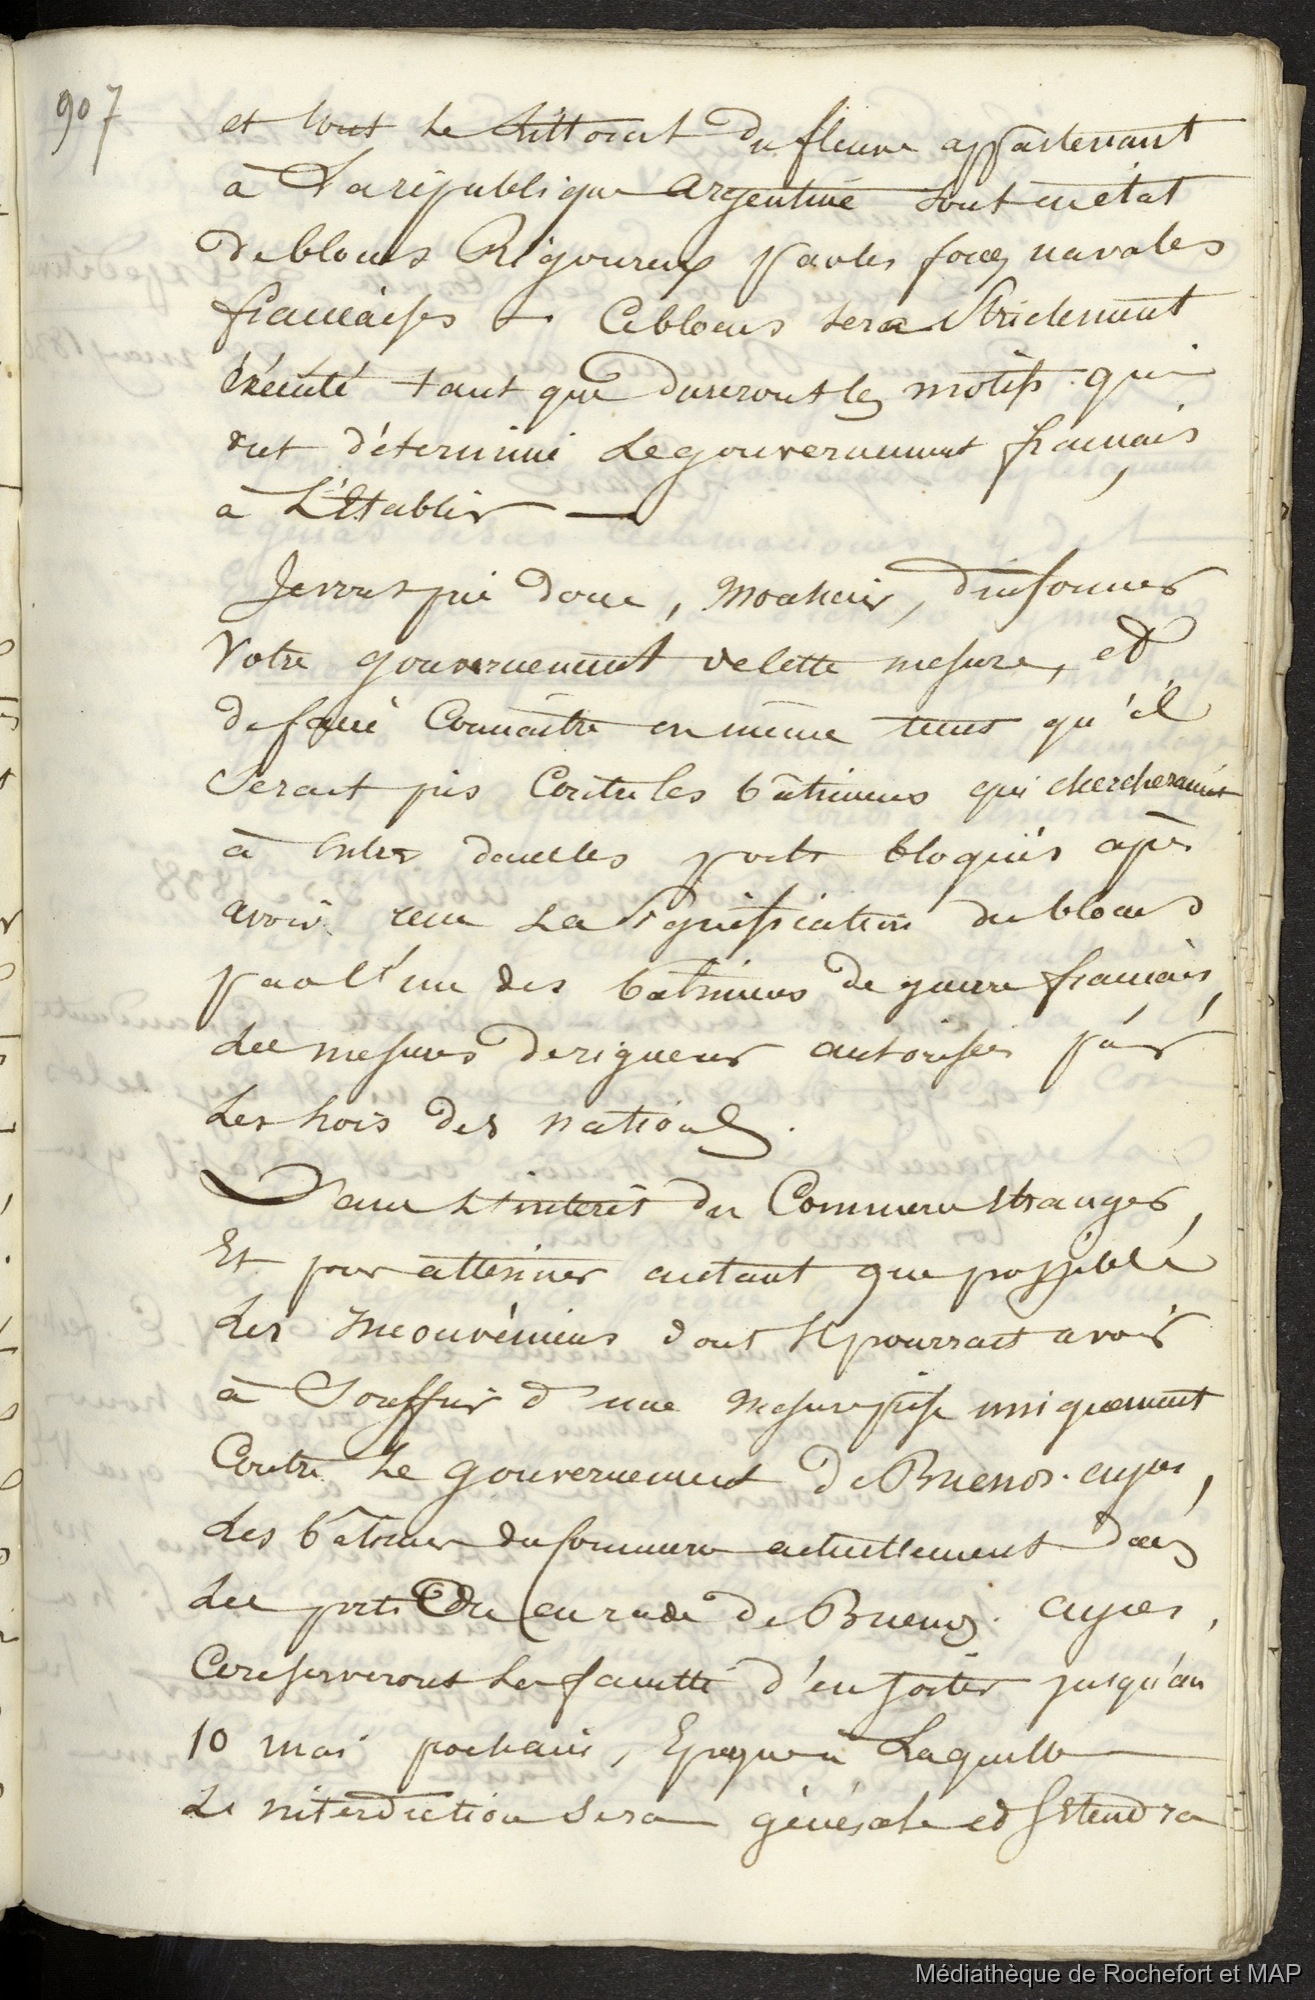 907
et tout le Littoral du fleuve appartenant
à La république Argentine sont en état
de blocus Rigoureux par les forces navales
françaises — Ce blocus sera Strictement
éxécuté tant que dureront les motifs qui
ont déterminé Le gouvernement français
à L'Etablir —
Je vous prie donc, Monsieur, d'informer
Votre gouvernement de cette mesure, et
de faire Connaître en même tems qu'il
Serait pris Contre les bâtimens qui chercheraient
à Entrer dans les ports bloqués après
avoir recu La Signification du blocus
par l'un des bâtimens de guerre français,
des mesures de rigueur autorisées par
Les Lois des nations.
Dans L'interêt du Commerce Etranger,
Et pour atténuer autant que possible
Les Inconvéniens dont Il pourrait avoir
à Souffrir d'une Mesure prise uniquement
Contre Le gouvernement de Buenos-ayres,
Les bâtimens du Commerce actuellement dans
Les ports Ou en rade de Buenos-ayres,
Conserveront La faculté d'en sortir jusqu'au
10 mai prochain, Epoque à Laquelle
L'interdiction Sera générale et S'etendra
Médiathèque de Rochefort et MAP